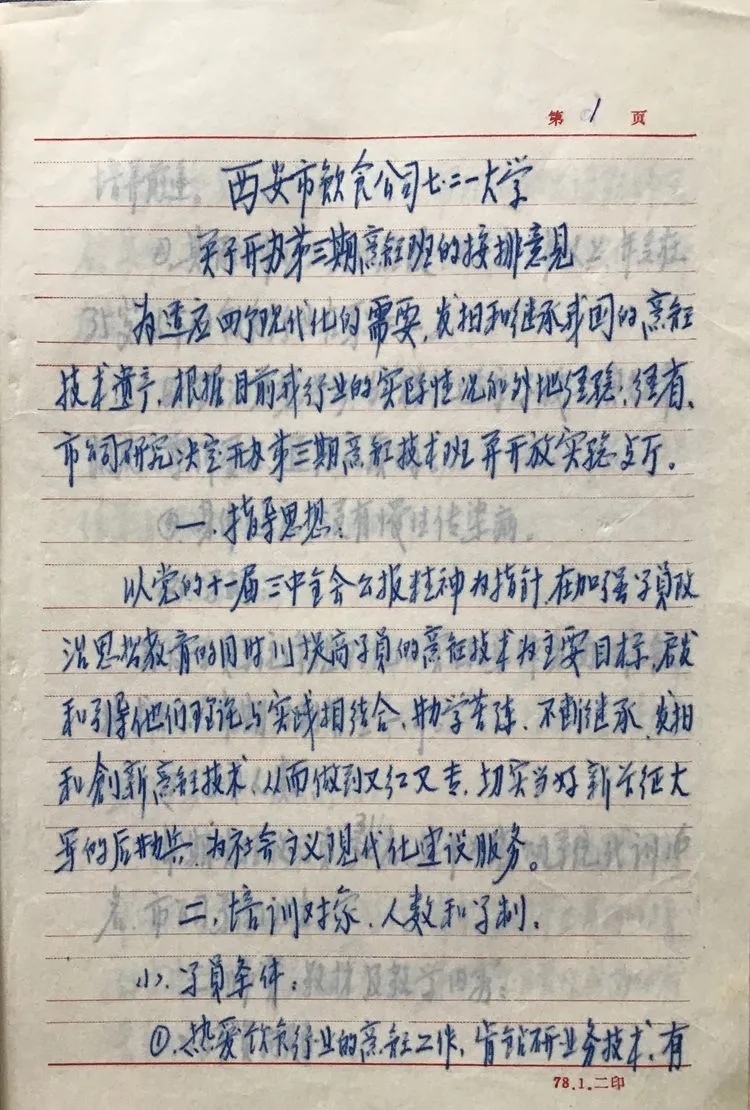 第 1 页
西安市飲食公司七·二一大学
关于开办第三期烹饪班的按排意见
为适应四个现代化的需要,发扬和继承我国的烹飪
技术遗产,根据目前我行业的实际情况和外地经验,经省、
市公司研究决定开办第三期烹飪技术班并开放实验歺厅。
一、指导思想:
以党的十一届三中全会公报精神为指针,在加强学員政
治思想教育的同时以提高学員的烹飪技术为主要目标,启发
和引导他们理论与实践相结合、勤学苦练、不断继承、发扬
和創新烹飪技术,从而做到又红又专,切实当好新长征大
军的后勤兵,为社会主义现代化建设服务。
二、培训对象、人数和学制。
小、学員条件:
①、热爱饮食行业的烹飪工作,肯钻研业务技术,有
78.1.二印